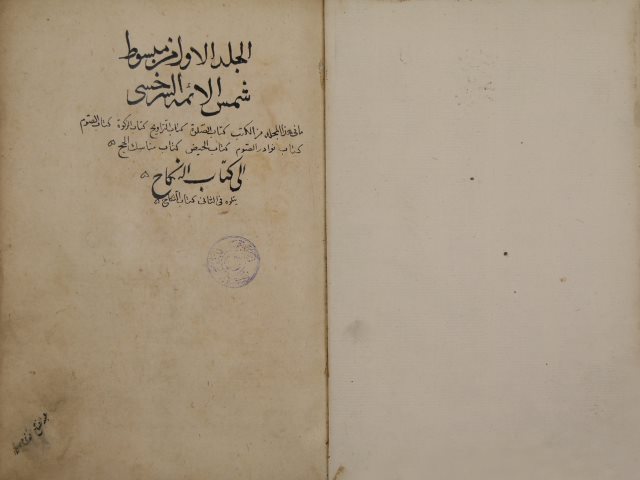 الجلد الاول من مبسوط
شمس الائمة السرخسى
ما فى هذا المجلد من الكتب كتاب الصلوة كتاب التراويح كتاب الزكوة كتاب الصوم
كتاب نوادر الصوم كتاب الحيض كتاب مناسك الحج
الى كتاب النكاح
يتلوه فى الثانى كتاب النكاح